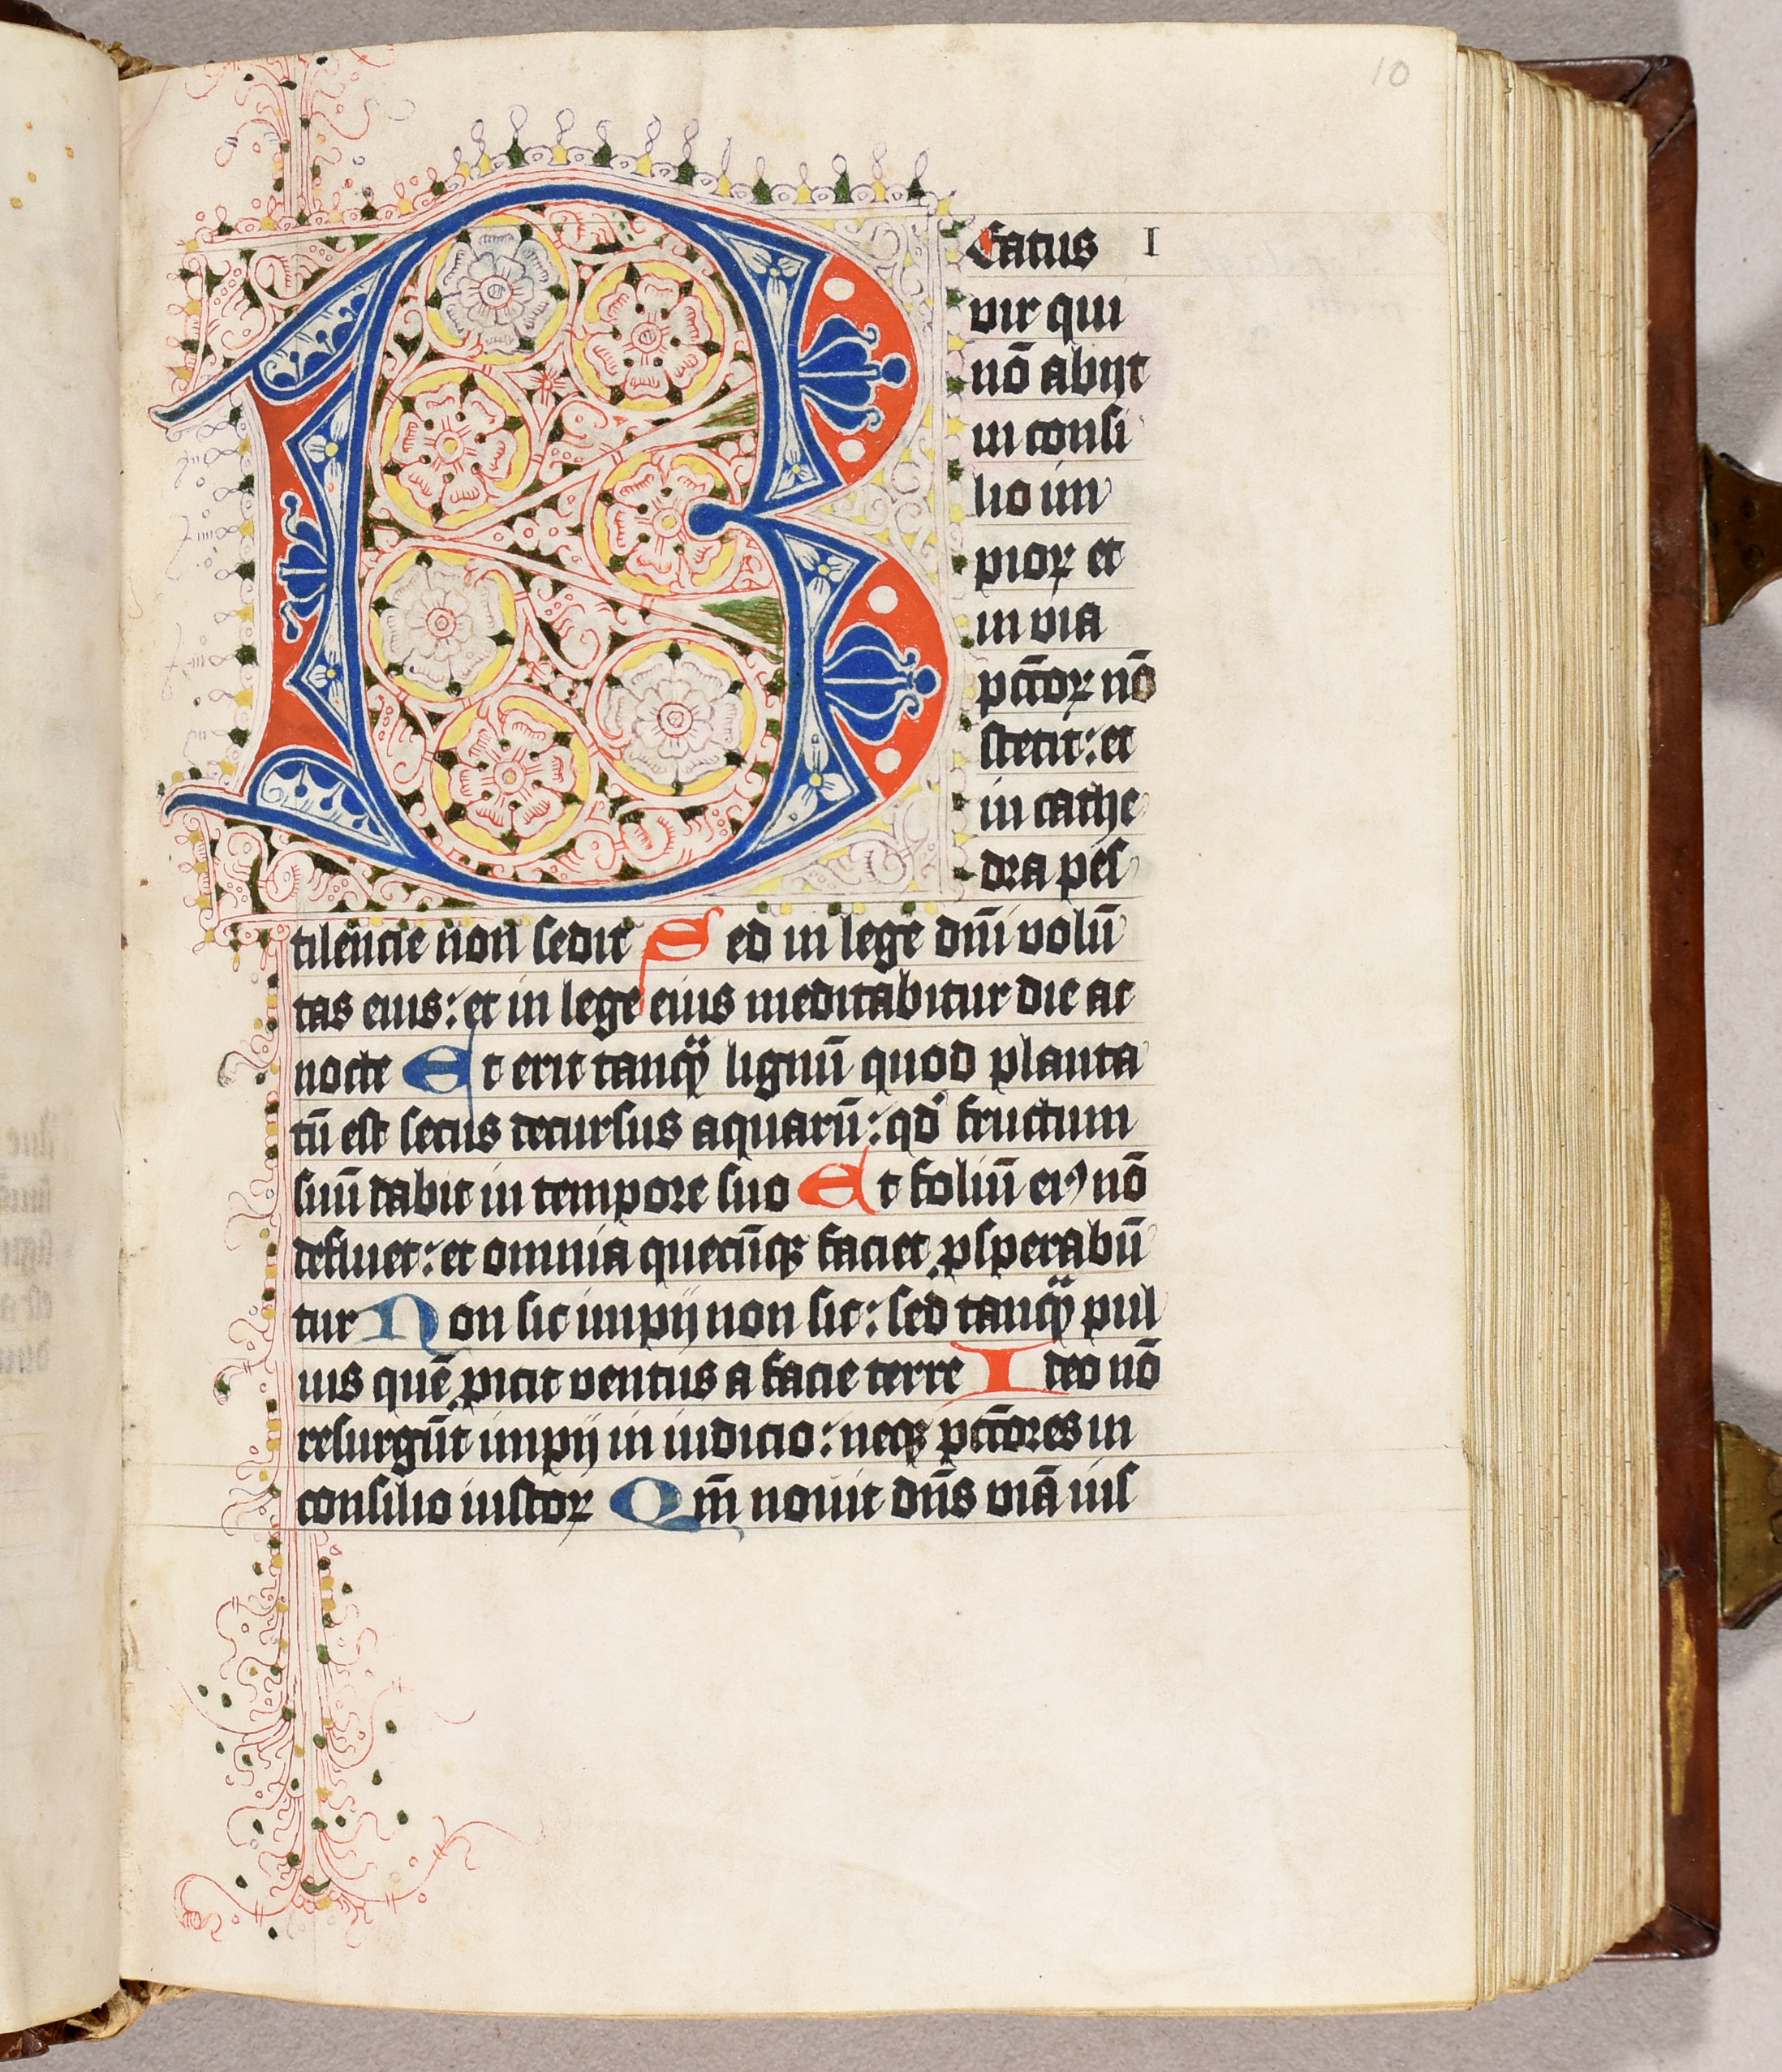 10
Beatus I
vir qui
nō abijt
in consi
lio im
pioꝝ et
in via
pctōꝝ nō
stetit: et
in cathe
dra pes
tilencie non sedit Sed in lege dn̄i volū
tas eius: et in lege eius meditabitur die ac
nocte Et erit tanqͣ lignū quod planta
tū est secus decursus aquarū: qd̓ fructum
suū dabit in tempore suo Et foliū eiꝰ nō
defluet: et omnia quecūqꝫ faciet ꝓsperabū
tur Non sic impij non sic: sed tanqͣ pul
uis quē ꝓicit ventus a facie terre Ideo nō
resurgūt impij in iudicio: neqꝫ pctōres in
consilio iustoꝝ Qm̄ nouit dn̄s viā ius